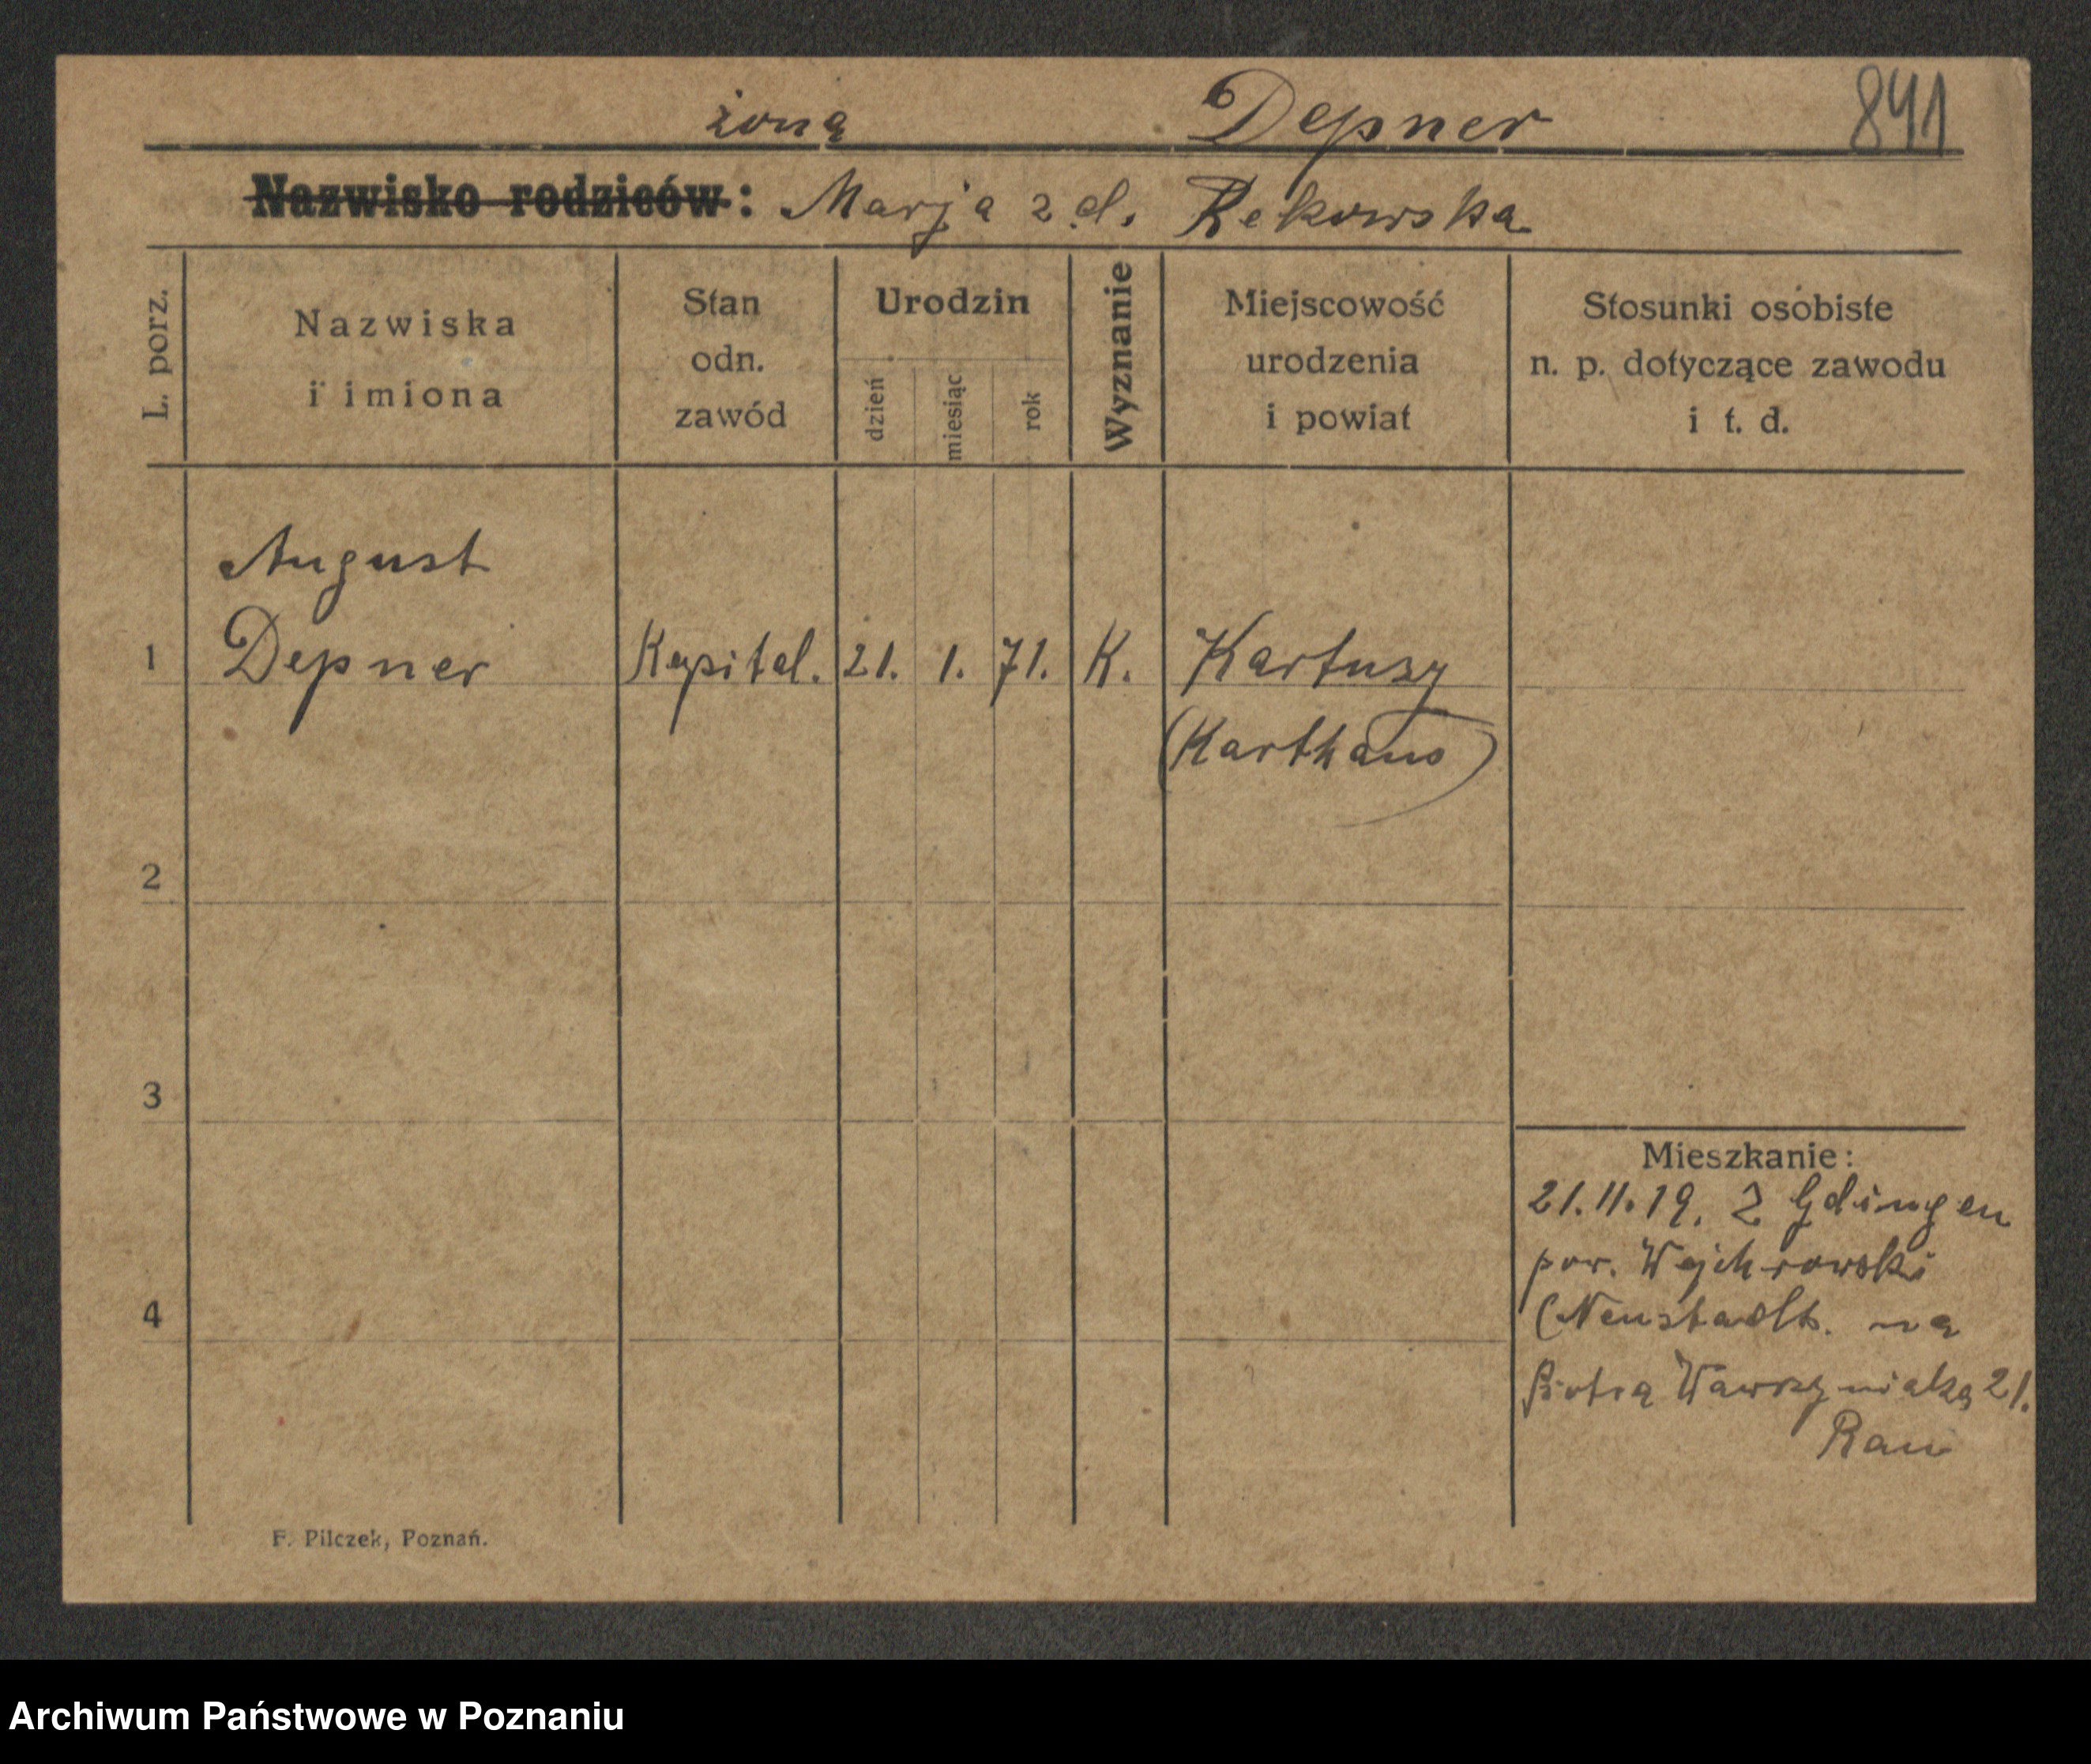 żona Depner 841
Nazwisko rodziców: Marja z d. Rekowska
L. porz.
Nazwiska
i imiona
Stan
odn.
zawód
Urodzin
dzień
miesiąc
rok
Wyznanie
Miejscowość
urodzenia
i powiat
Stosunki osobiste
n. p. dotyczące zawodu
i t. d.
August
1 Depner Kapital. 21. 1. 71. K. Kartuzy
(Karthaus)
2
3
4
Mieszkanie:
21.11.19. Z Gdingen
pow. Wejchrowski
(Neustadt. na
Piotra Wawrzyniaka 21.
Rau
F. Pilczek, Poznań.
Archiwum Państwowe w Poznaniu